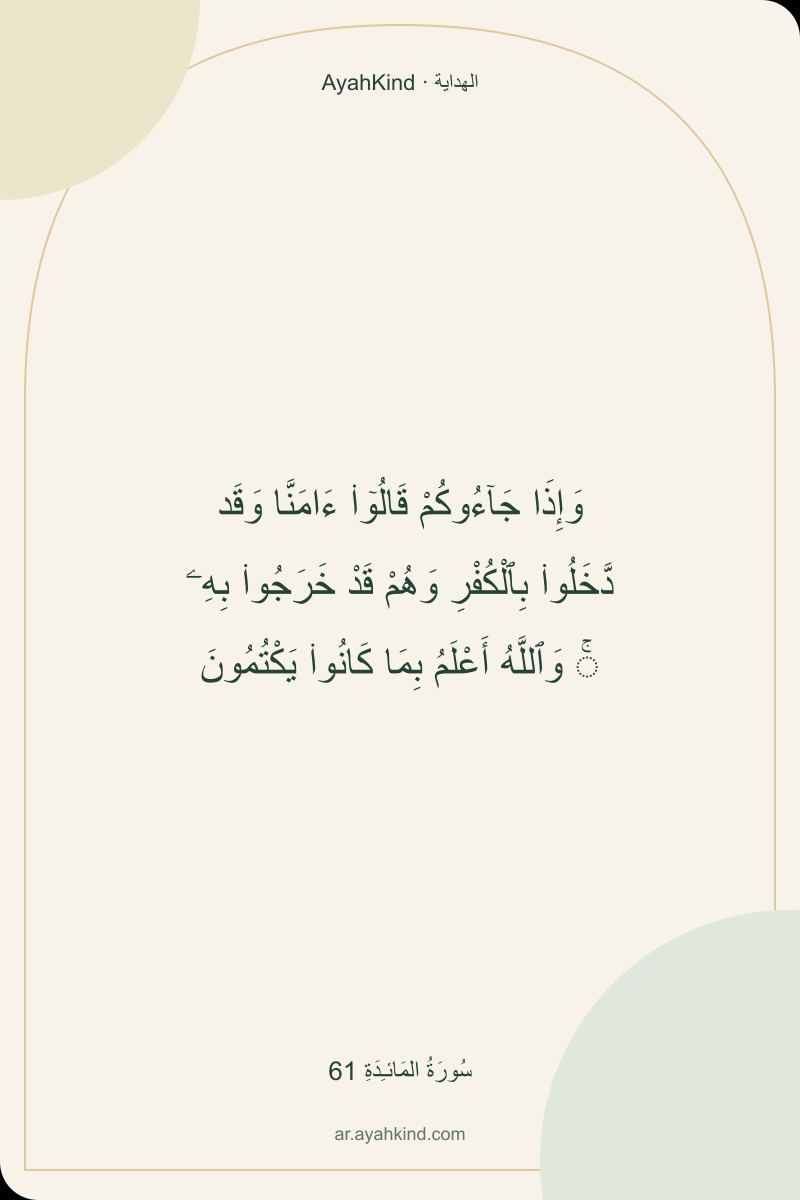 AyahKind · الهداية
وَإِذَا جَآءُوكُمْ قَالُوٓا۟ ءَامَنَّا وَقَد
دَّخَلُوا۟ بِٱلْكُفْرِ وَهُمْ قَدْ خَرَجُوا۟ بِهِۦ
ۚ وَٱللَّهُ أَعْلَمُ بِمَا كَانُوا۟ يَكْتُمُونَ
سُورَةُ المَائـِدَةِ 61
ar.ayahkind.com